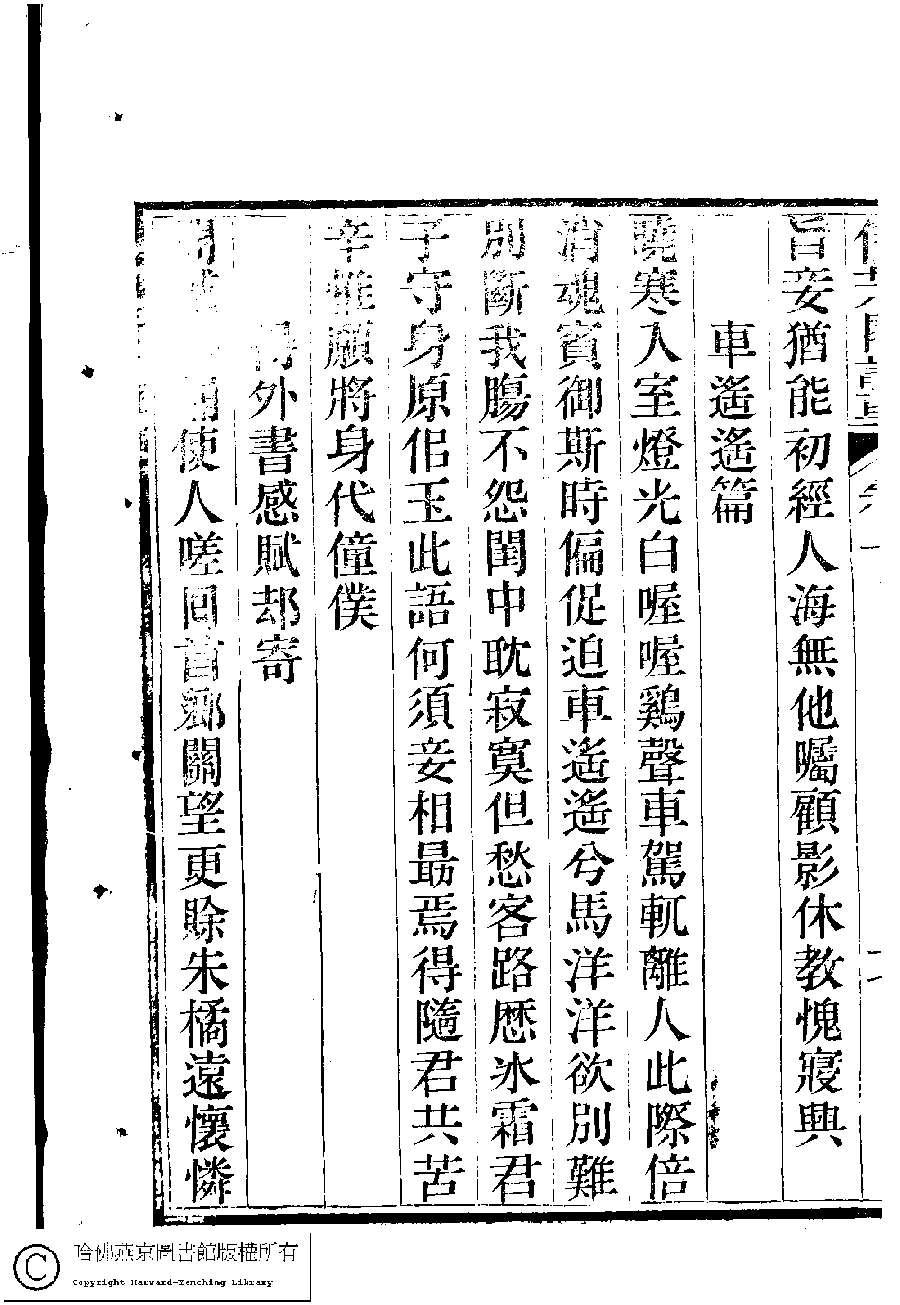 旨妾猶能初經人海無他囑顧影休教愧寢興
車遙遙篇
曉寒入室燈光白喔喔鷄聲車駕軏離人此際倍
消魂賓御斯時偏促迫車遙遙兮馬洋洋欲別難
別斷我腸不怨閨中耽寂寞但愁客路歷氷霜君
子守身原佀玉此語何須妾相勗焉得隨君共苦
辛惟願將身代僮僕
得外書感賦却寄
使人嗟回首鄉關望更賒朱橘遠懷憐
哈佛燕京圖書館版權所有
Copyright Harvard-Yenching Library